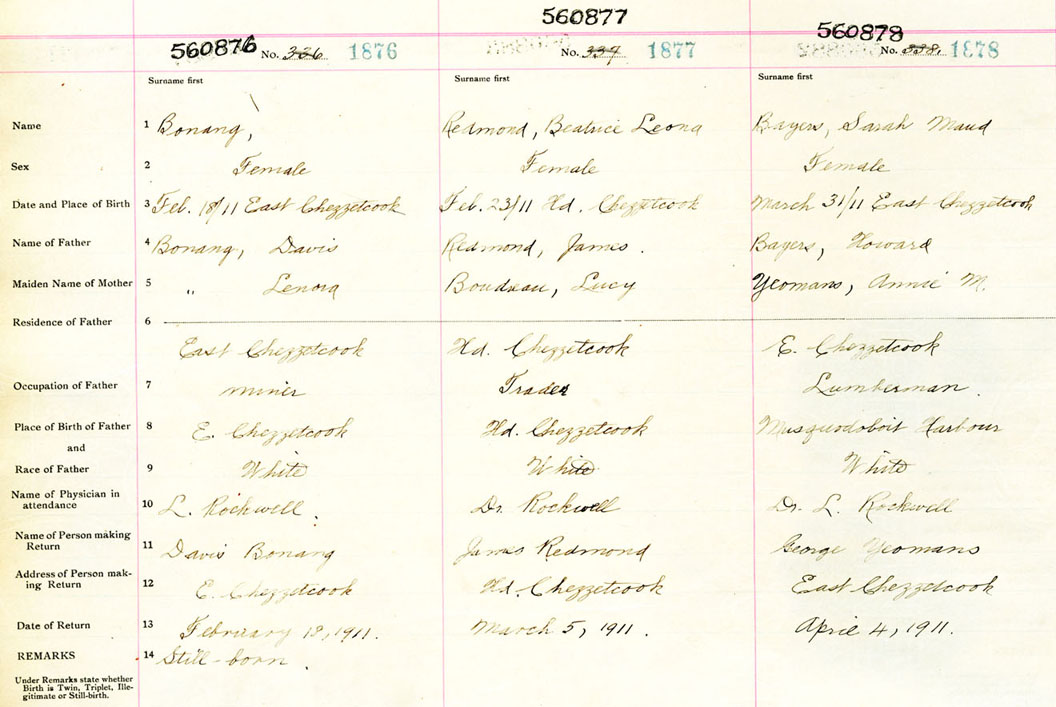 560876 No. 336 1876 560877 No. 337 1877 560878 No. 338. 1878
Surname first Surname first Surname first
Name 1 Bonang, Redmond, Beatrice Leona Bayers, Sarah Maud
Sex 2 Female Female Female
Date and Place of Birth 3 Feb. 18/11 East Chezzetcook Feb. 23/11 Hd. Chezzetcook March 31/11 East Chezzetcook
Name of Father 4 Bonang, Davis Redmond, James. Bayers, Howard
Maiden Name of Mother 5 " Lenora Boudreau, Lucy Yeomans, Annie M.
Residence of Father 6
East Chezzetcook Hd. Chezzetcook E. Chezzetcook
Occupation of Father 7 miner Trader Lumberman.
Place of Birth of Father 8 E. Chezzetcook Hd. Chezzetcook Musquodoboit Harbour
and
Race of Father 9 White White White
Name of Physician in
attendance 10 L. Rockwell. Dr. Rockwell Dr. L. Rockwell
Name of Person making
Return 11 Davis Bonang James Redmond George Yeomans
Address of Person mak-
ing Return 12 E. Chezzetcook Hd. Chezzetcook East Chezzetcook
Date of Return 13 February 18, 1911. March 5, 1911. April 4, 1911.
REMARKS 14 Still-born.
Under Remarks state whether
Birth is Twin, Triplet, Ille-
gitimate or Still-birth.